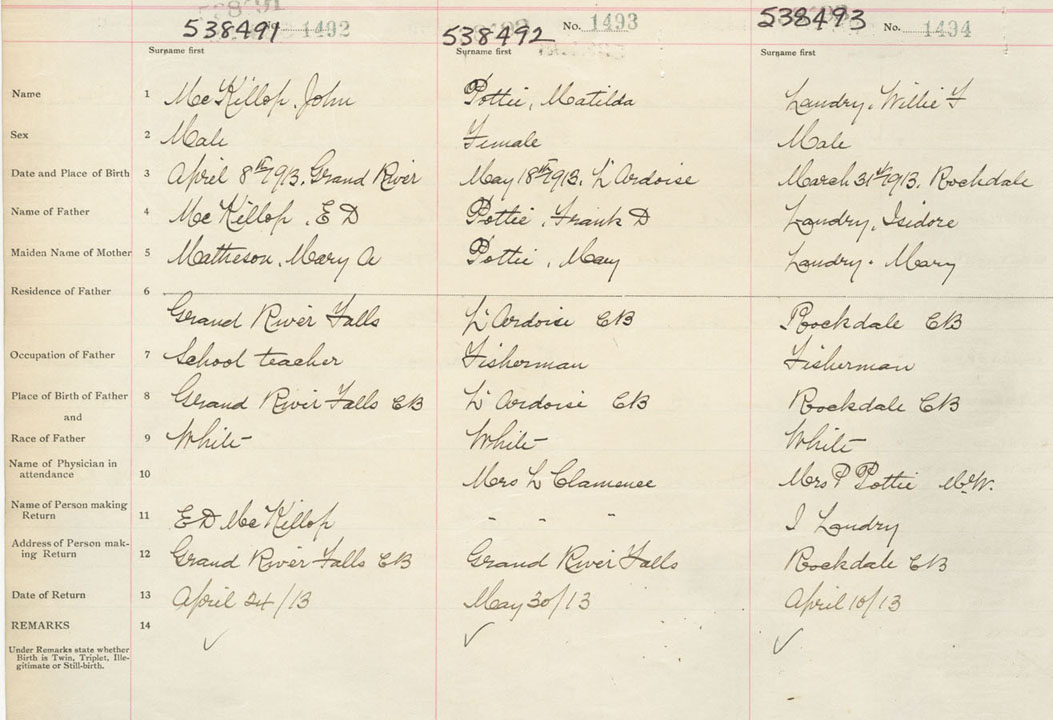 538491 No. 1492
538492 No. 1493
538493 No. 1494
Surname first Surname first Surname first
Name 1 McKillop, John Pottie, Matilda Landry, Willie F
Sex 2 Male Female Male
Date and Place of Birth 3 April 8th 1913. Grand River May 18th 1913. L'Ardoise March 31st 1913. Rockdale
Name of Father 4 McKillop, E D Pottie, Frank D Landry, Isidore
Maiden Name of Mother 5 Matheson, Mary A Pottie, Mary Landry. Mary
Residence of Father 6
Grand River Falls L'Ardoise CB Rockdale CB
Occupation of Father 7 School teacher Fisherman Fisherman
Place of Birth of Father 8 Grand River Falls CB L'Ardoise CB Rockdale CB
and
Race of Father 9 White White White
Name of Physician in
attendance 10 Mrs L Clamence Mrs P Pottie
Name of Person making
Return 11 E D McKillop " " " I Landry
Address of Person mak-
ing Return 12 Grand River Falls CB Grand River Falls Rockdale CB
Date of Return 13 April 24/13 May 30/13 April 10/13
REMARKS 14
Under Remarks state whether
Birth is Twin, Triplet, Ille-
gitimate or Still-birth.